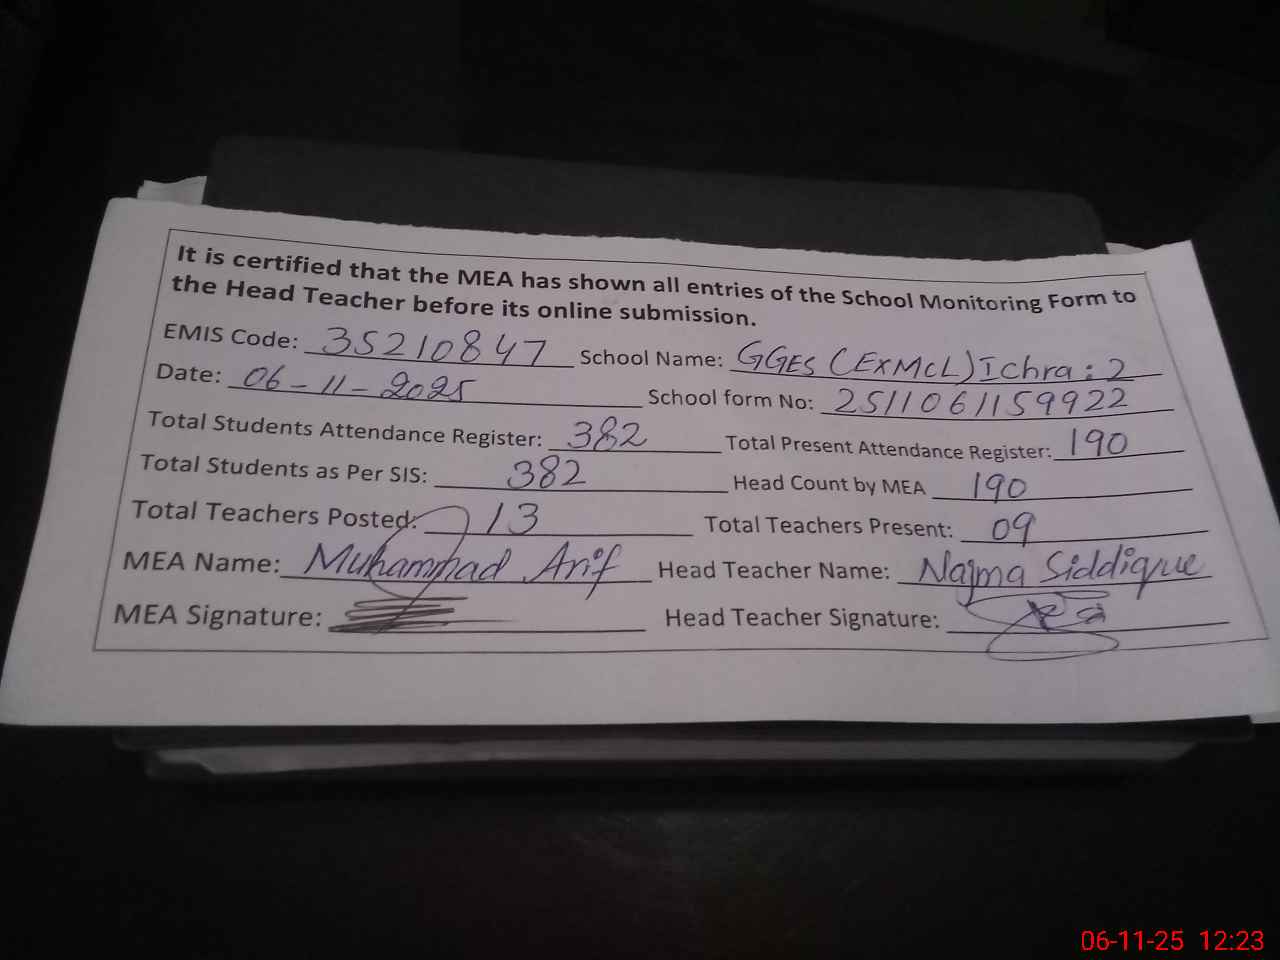 It is certified that the MEA has shown all entries of the School Monitoring Form to
the Head Teacher before its online submission.
EMIS Code: 35210847 School Name: GGES (ExMCL) Ichra: 2
Date: 06-11-2025 School form No: 2511061159922
Total Students Attendance Register: 382 Total Present Attendance Register: 190
Total Students as Per SIS: 382 Head Count by MEA 190
Total Teachers Posted: 13 Total Teachers Present: 09
MEA Name: Muhammad Arif Head Teacher Name: Najma Siddique
MEA Signature: Head Teacher Signature:
06-11-25 12:23